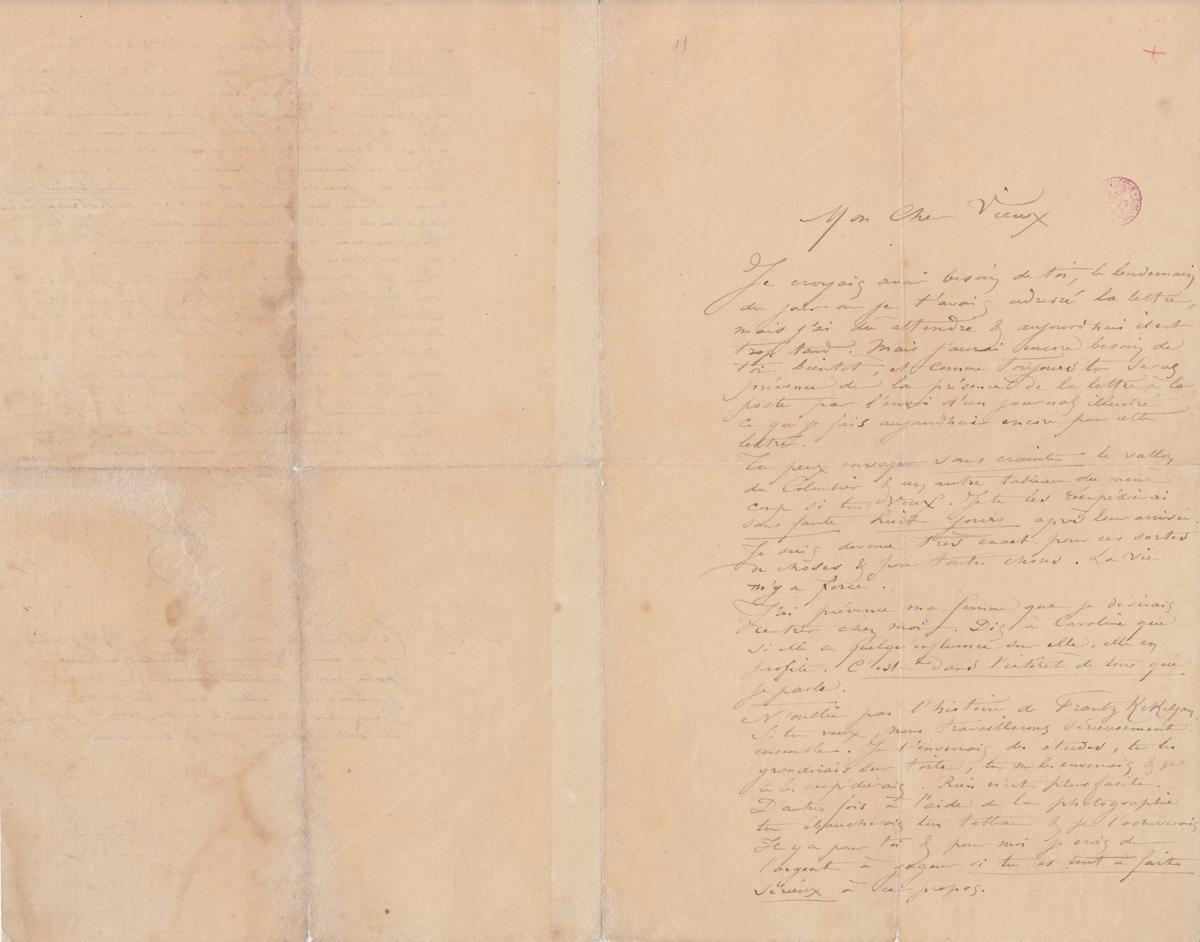 11
Mon Cher Vieux
Je croyais avoir besoin de toi, le lendemain
du jour où je t'avais adressé la lettre,
mais j'ai dû attendre & aujourd'hui il est
trop tard. Mais j'aurai encore besoin de
toi bientôt, et comme toujours tu seras
prévenu de la présence de la lettre à la
poste par l'envoi d'un journal illustré
ce que je fais aujourd'hui encore pour cette
lettre.
Tu peux envoyer sans crainte le vallon
du Colombier & un autre tableau du même
coup si tu veux. Je te les réexpédierai
sans faute huit jours après leur arrivée
Je suis devenu très exact pour ces sortes
de choses & pour toutes choses. La vie
m'y a forcé.
J'ai prévenu ma femme que je désirais
rentrer chez moi. Dis à Caroline que
si elle a quelque influence sur elle, elle en
profite. C'est dans l'intérêt de tous que
je parle.
N'oublie pas l'histoire de Frantz
Si tu veux, nous travaillerons sérieusement
ensemble. Je t'enverrais des études, tu les
grandirais sur toile, tu me les enverrais & je
te les réexpédierais. Rien n'est plus facile.
D'autres fois à l'aide de la photographie
tu ébaucherais ton tableau & je l'achèverais
Il y a pour toi & pour moi je crois de
l'argent à gagner si tu es tout à fait
sérieux à ce propos.